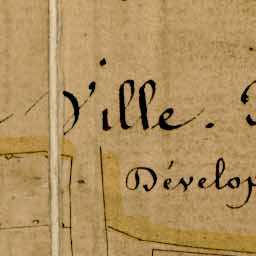 Ville.
Dévelop